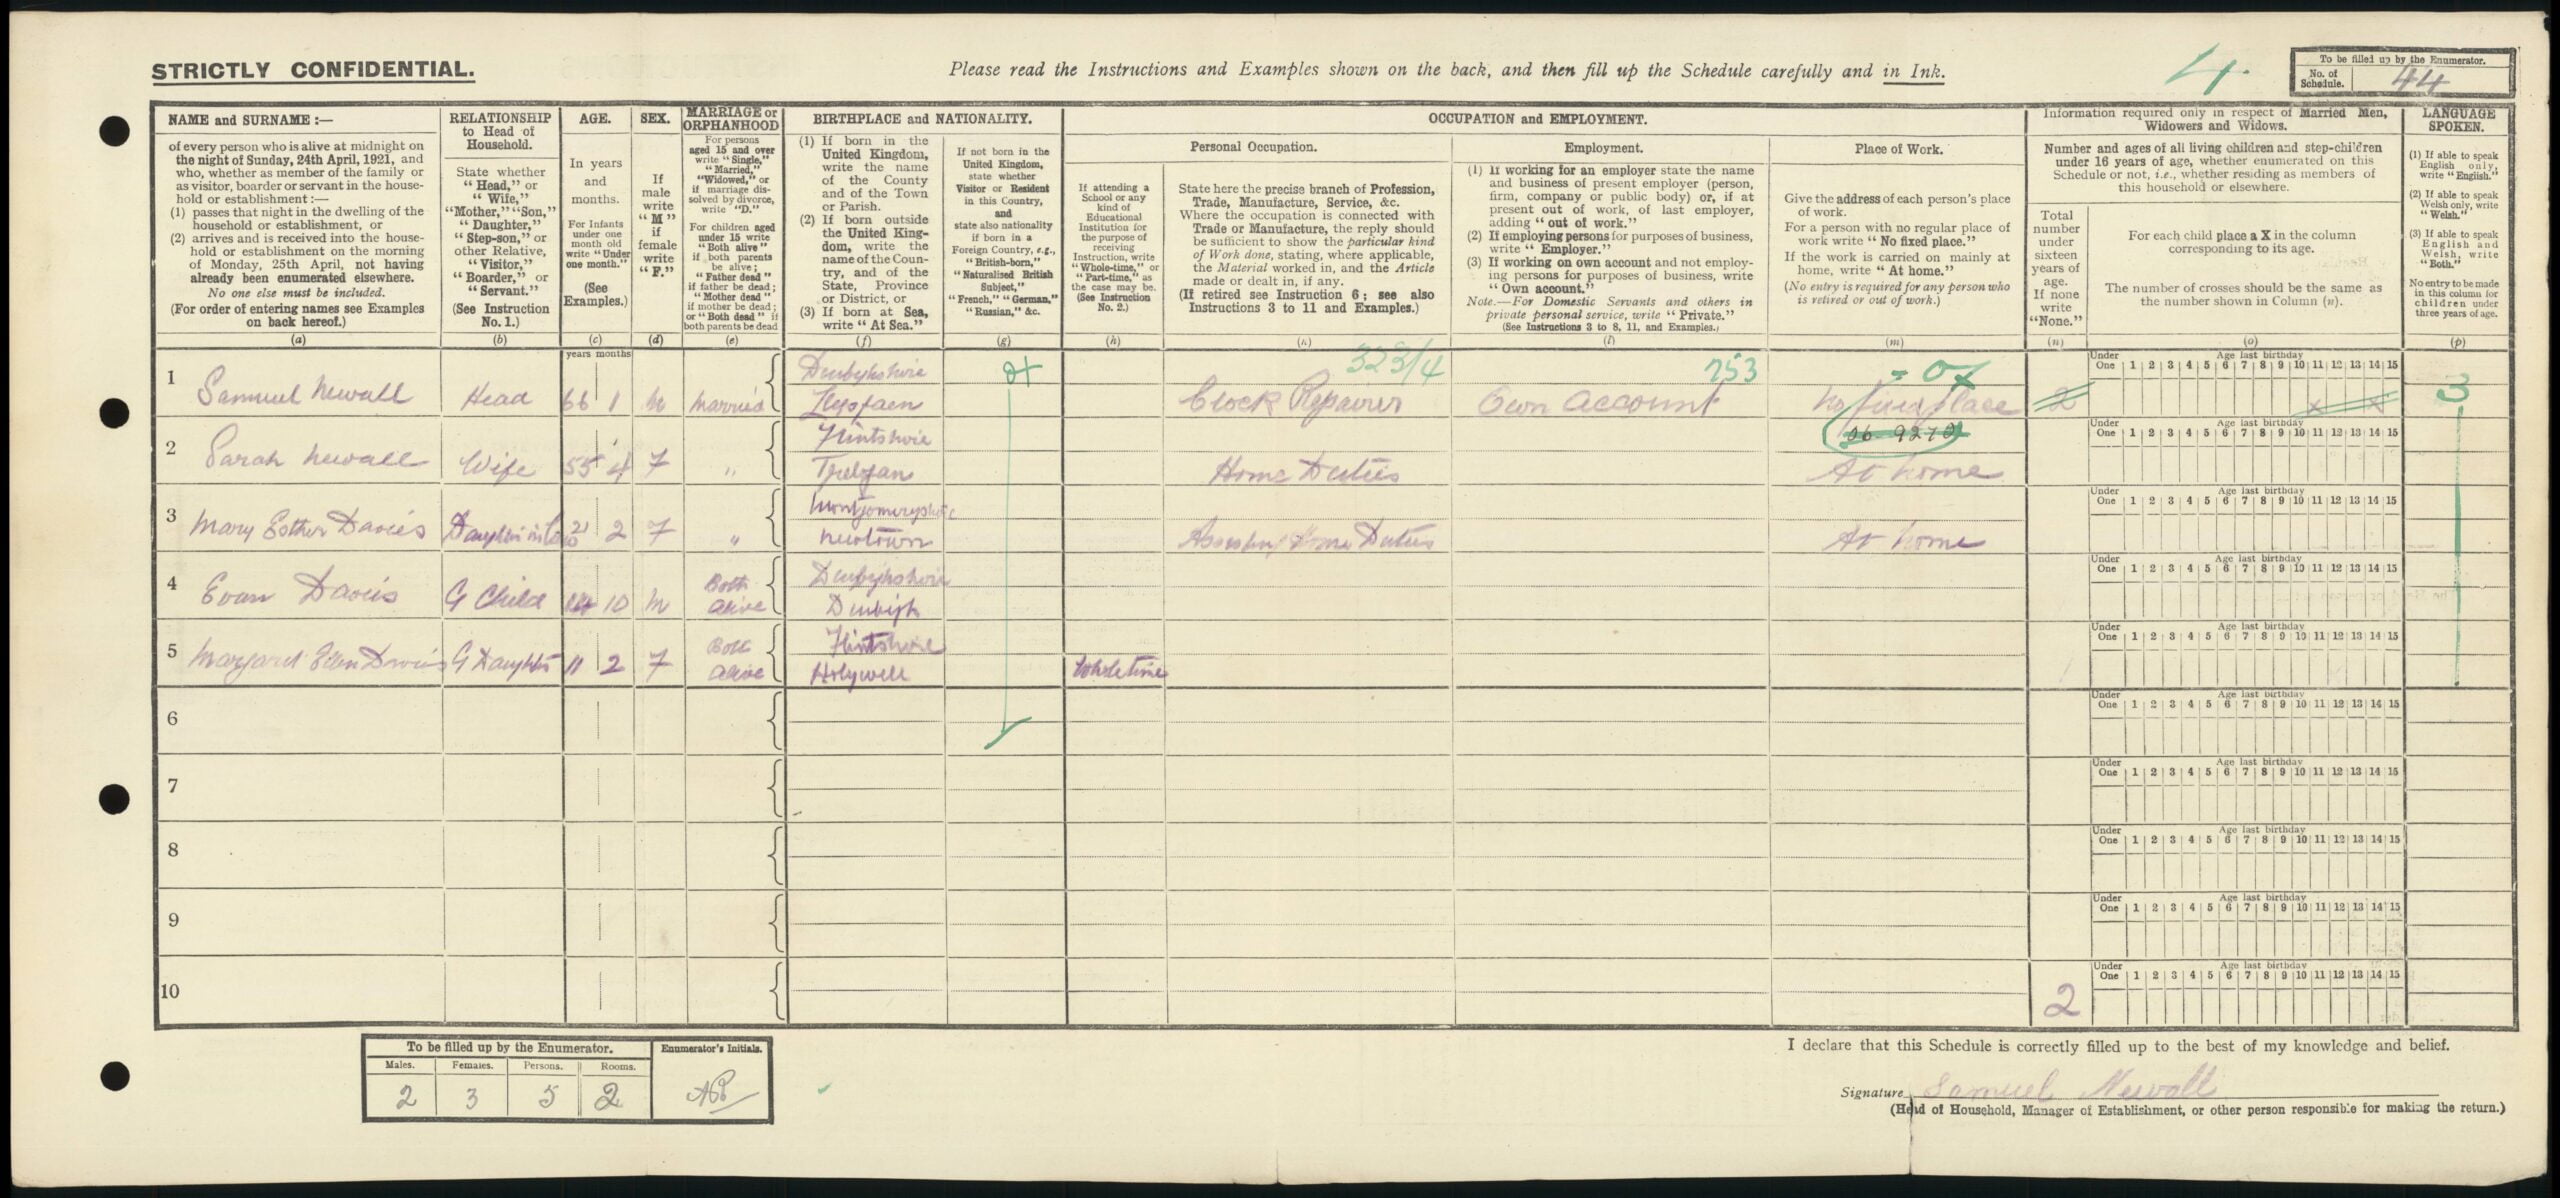 STRICTLY CONFIDENTIAL.
Please read the Instructions and Examples shown on the back, and then fill up the Schedule carefully and in Ink.
4.
To be filled up by the Enumerator.
No. of Schedule. 44
NAME and SURNAME :—
of every person who is alive at midnight on
the night of Sunday, 24th April, 1921, and
who, whether as member of the family or
as visitor, boarder or servant in the house-
hold or establishment :—
(1) passes that night in the dwelling of the
household or establishment, or
(2) arrives and is received into the house-
hold or establishment on the morning
of Monday, 25th April, not having
already been enumerated elsewhere.
No one else must be included.
(For order of entering names see Examples
on back hereof.)
(a)
RELATIONSHIP
to Head of
Household.
State whether
"Head," or
"Wife,"
"Mother," "Son,"
"Daughter,"
"Step-son," or
other Relative,
"Visitor,"
"Boarder," or
"Servant."
(See Instruction
No. 1.)
(b)
AGE.
In years
and
months.
For Infants
under one
month old
write "Under
one month."
(See
Examples.)
(c)
SEX.
If
male
write
"M"
if
female
write
"F."
(d)
MARRIAGE or
ORPHANHOOD
For persons
aged 15 and over
write "Single,"
"Married,"
"Widowed," or
if marriage dis-
solved by divorce,
write "D."
For children aged
under 15 write
"Both alive"
if both parents
be alive;
"Father dead"
if father be dead;
"Mother dead"
if mother be dead;
or "Both dead" if
both parents be dead
(e)
BIRTHPLACE and NATIONALITY.
(1) If born in the
United Kingdom,
write the name
of the County
and of the Town
or Parish.
(2) If born outside
the United King-
dom, write the
name of the Coun-
try, and of the
State, Province
or District, or
(3) If born at Sea,
write "At Sea."
(f)
If not born in the
United Kingdom,
state whether
Visitor or Resident
in this Country,
and
state also nationality
if born in a
Foreign Country, e.g.,
"British-born,"
"Naturalised British
Subject,"
"French," "German,"
"Russian," &c.
(g)
OCCUPATION and EMPLOYMENT.
If attending a
School or any
kind of
Educational
Institution for
the purpose of
receiving
Instruction, write
"Whole-time," or
"Part-time," as
the case may be.
(See Instruction
No. 2.)
(h)
Personal Occupation.
State here the precise branch of Profession,
Trade, Manufacture, Service, &c.
Where the occupation is connected with
Trade or Manufacture, the reply should
be sufficient to show the particular kind
of Work done, stating, where applicable,
the Material worked in, and the Article
made or dealt in, if any.
(If retired see Instruction 6; see also
Instructions 3 to 11 and Examples.)
(k)
Employment.
(1) If working for an employer state the name
and business of present employer (person,
firm, company or public body) or, if at
present out of work, of last employer,
adding "out of work."
(2) If employing persons for purposes of business,
write "Employer."
(3) If working on own account and not employ-
ing persons for purposes of business, write
"Own account."
Note.—For Domestic Servants and others in
private personal service, write "Private."
(See Instructions 3 to 8, 11, and Examples.)
(l)
Place of Work.
Give the address of each person's place
of work.
For a person with no regular place of
work write "No fixed place."
If the work is carried on mainly at
home, write "At home."
(No entry is required for any person who
is retired or out of work.)
(m)
Information required only in respect of Married Men,
Widowers and Widows.
Number and ages of all living children and step-children
under 16 years of age, whether enumerated on this
Schedule or not, i.e., whether residing as members of
this household or elsewhere.
Total
number
under
sixteen
years of
age.
If none
write
"None."
(n)
For each child place a X in the column
corresponding to its age.
The number of crosses should be the same as
the number shown in Column (n).
(o)
LANGUAGE
SPOKEN.
(1) If able to speak
English only,
write "English."
(2) If able to speak
Welsh only, write
"Welsh."
(3) If able to speak
English and
Welsh, write
"Both."
No entry to be made
in this column for
children under
three years of age.
(p)
years months
Under One Age last birthday 1 2 3 4 5 6 7 8 9 10 11 12 13 14 15
1 Samuel Newall Head 66 1 M Married Denbighshire 323/4 Clock Repairer 753 Own Account No fixed place 2 x x 3
Under One Age last birthday 1 2 3 4 5 6 7 8 9 10 11 12 13 14 15
2 Sarah Newall Wife 55 4 F " Flintshire Home Duties At home
Under One Age last birthday 1 2 3 4 5 6 7 8 9 10 11 12 13 14 15
3 Mary Esther Davies 2 F " Montgomeryshire Newtown Home Duties At home
Under One Age last birthday 1 2 3 4 5 6 7 8 9 10 11 12 13 14 15
4 Evan Davies G Child 14 10 M Both Alive Denbighshire Denbigh
Under One Age last birthday 1 2 3 4 5 6 7 8 9 10 11 12 13 14 15
5 Margaret Ellen Davies G Daughter 11 2 F Both Alive Flintshire Holywell Whole time
Under One Age last birthday 1 2 3 4 5 6 7 8 9 10 11 12 13 14 15
6
Under One Age last birthday 1 2 3 4 5 6 7 8 9 10 11 12 13 14 15
7
Under One Age last birthday 1 2 3 4 5 6 7 8 9 10 11 12 13 14 15
8
Under One Age last birthday 1 2 3 4 5 6 7 8 9 10 11 12 13 14 15
9
Under One Age last birthday 1 2 3 4 5 6 7 8 9 10 11 12 13 14 15
10 2
To be filled up by the Enumerator.
Males. Females. Persons. Rooms.
2 3 5 2
Enumerator's Initials.
I declare that this Schedule is correctly filled up to the best of my knowledge and belief.
Signature Samuel Newall
(Head of Household, Manager of Establishment, or other person responsible for making the return.)